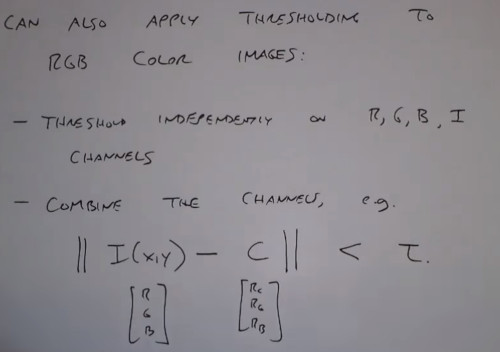 CAN ALSO APPLY THRESHOLDING TO
RGB COLOR IMAGES:
- THRESHOLD INDEPENDENTLY ON R, G, B, I
CHANNELS
- COMBINE THE CHANNELS, e.g.
|| I(x,y) - C || < τ.
[R G B] [RC RG RB]